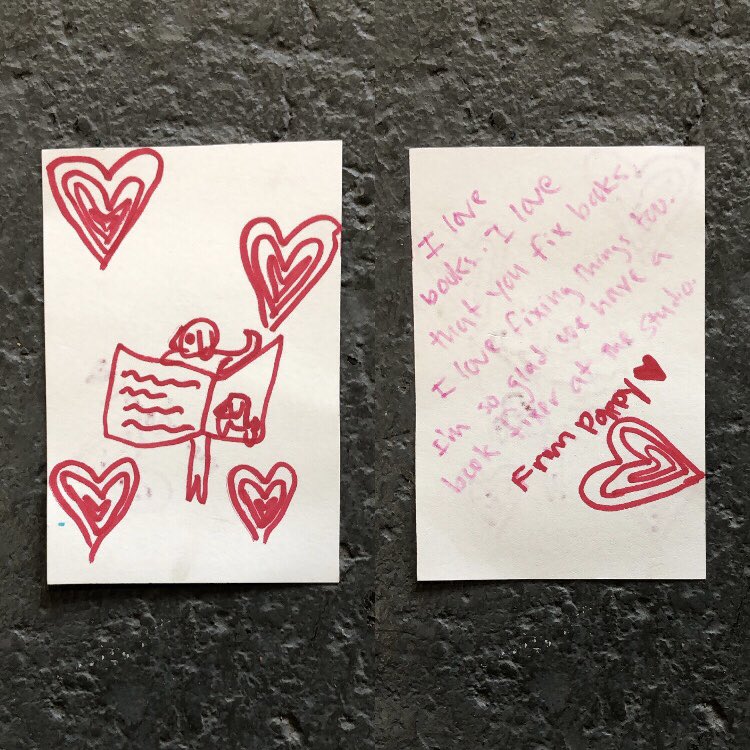 I love
books. I love
that you fix books.
I love fixing things too.
I'm so glad we have a
book fixer at the studio.
From Poppy